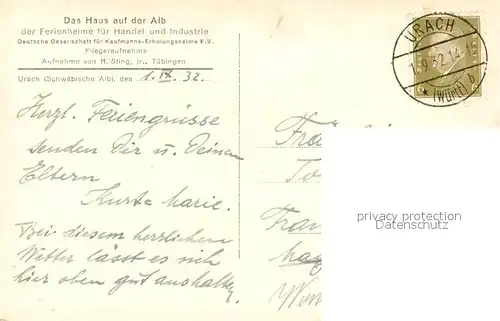 Das Haus auf der Alb
der Ferienheime für Handel und Industrie
Deutsche Gesellschaft für Kaufmanns-Erholungsheime E.V.
Fliegeraufnahme
Aufnahme von H. Sting, jr., Tübingen
Urach (Schwäbische Alb), den 1. IX. 32.
URACH
1.9.32.14-1
* (Württ) b
Herzl. Feriengrüsse
senden Dir u. Deinen
Eltern
Kurt u. Marie.
Bei diesem herrlichen
Wetter lässt es sich
hier oben gut aushalten.
privacy protection
Datenschutz